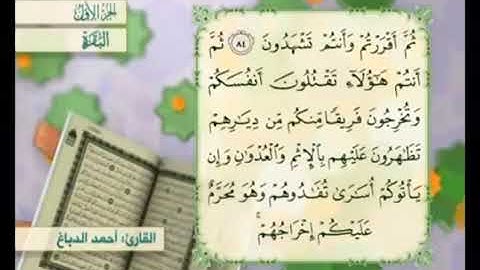 الجزء الأول
البقرة
ثُمَّ أَقْرَرْتُمْ وَأَنتُمْ تَشْهَدُونَ ﴿٨٤﴾ ثُمَّ
أَنتُمْ هَٰٓؤُلَآءِ تَقْتُلُونَ أَنفُسَكُمْ
وَتُخْرِجُونَ فَرِيقًا مِّنكُم مِّن دِيَٰرِهِمْ
تَظَٰهَرُونَ عَلَيْهِم بِٱلْإِثْمِ وَٱلْعُدْوَٰنِ وَإِن
يَأْتُوكُمْ أُسَٰرَىٰ تُفَٰدُوهُمْ وَهُوَ مُحَرَّمٌ
عَلَيْكُمْ إِخْرَاجُهُمْ ۚ
القارئ: أحمد الدباغ